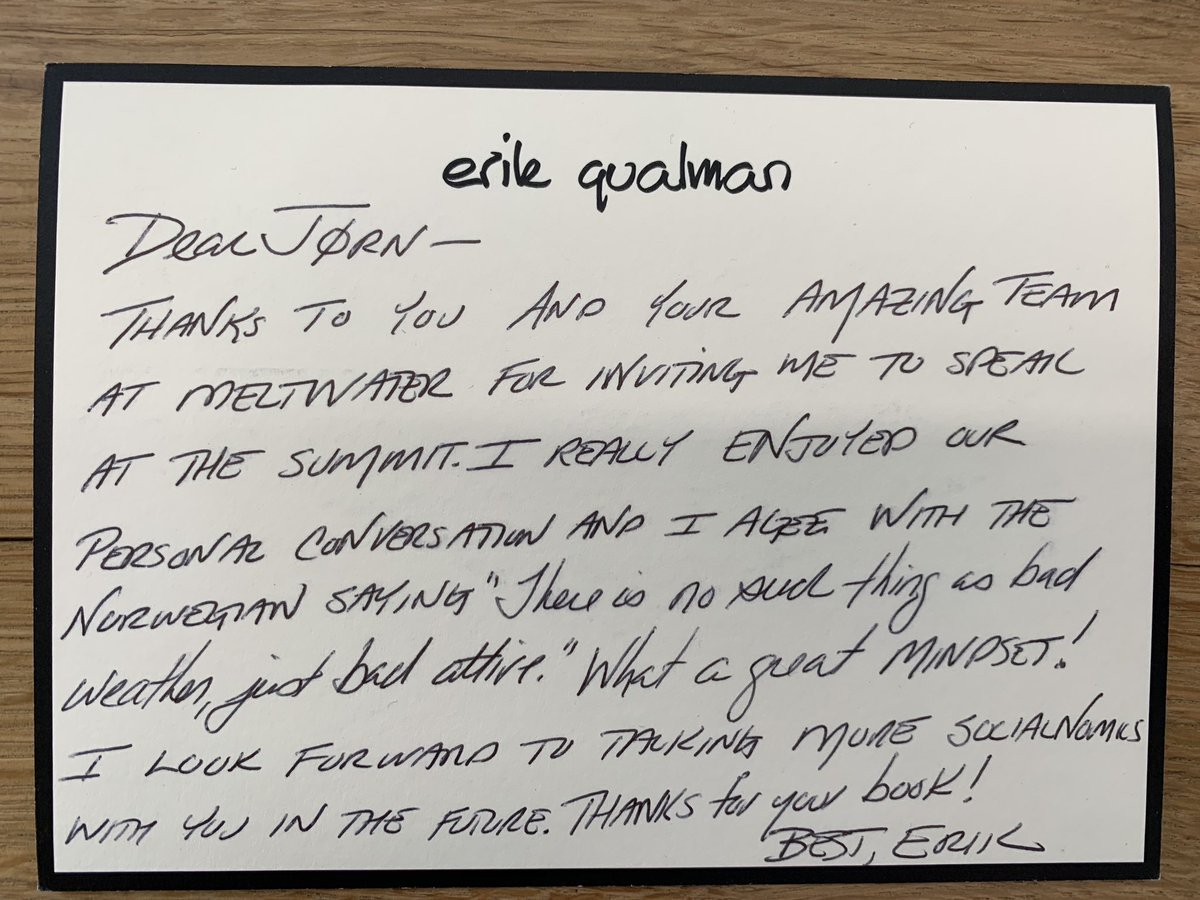 erik qualman
Dear JØRN —
THANKS TO YOU AND YOUR AMAZING TEAM
AT MELTWATER FOR INVITING ME TO SPEAK
AT THE SUMMIT. I REALLY ENJOYED OUR
PERSONAL CONVERSATION AND I AGREE WITH THE
NORWEGIAN SAYING "There is no such thing as bad
weather, just bad attire." What a great MINDSET!
I LOOK FORWARD TO TALKING MORE SOCIALNOMICS
WITH YOU IN THE FUTURE. THANKS for your book!
BEST, ERIK